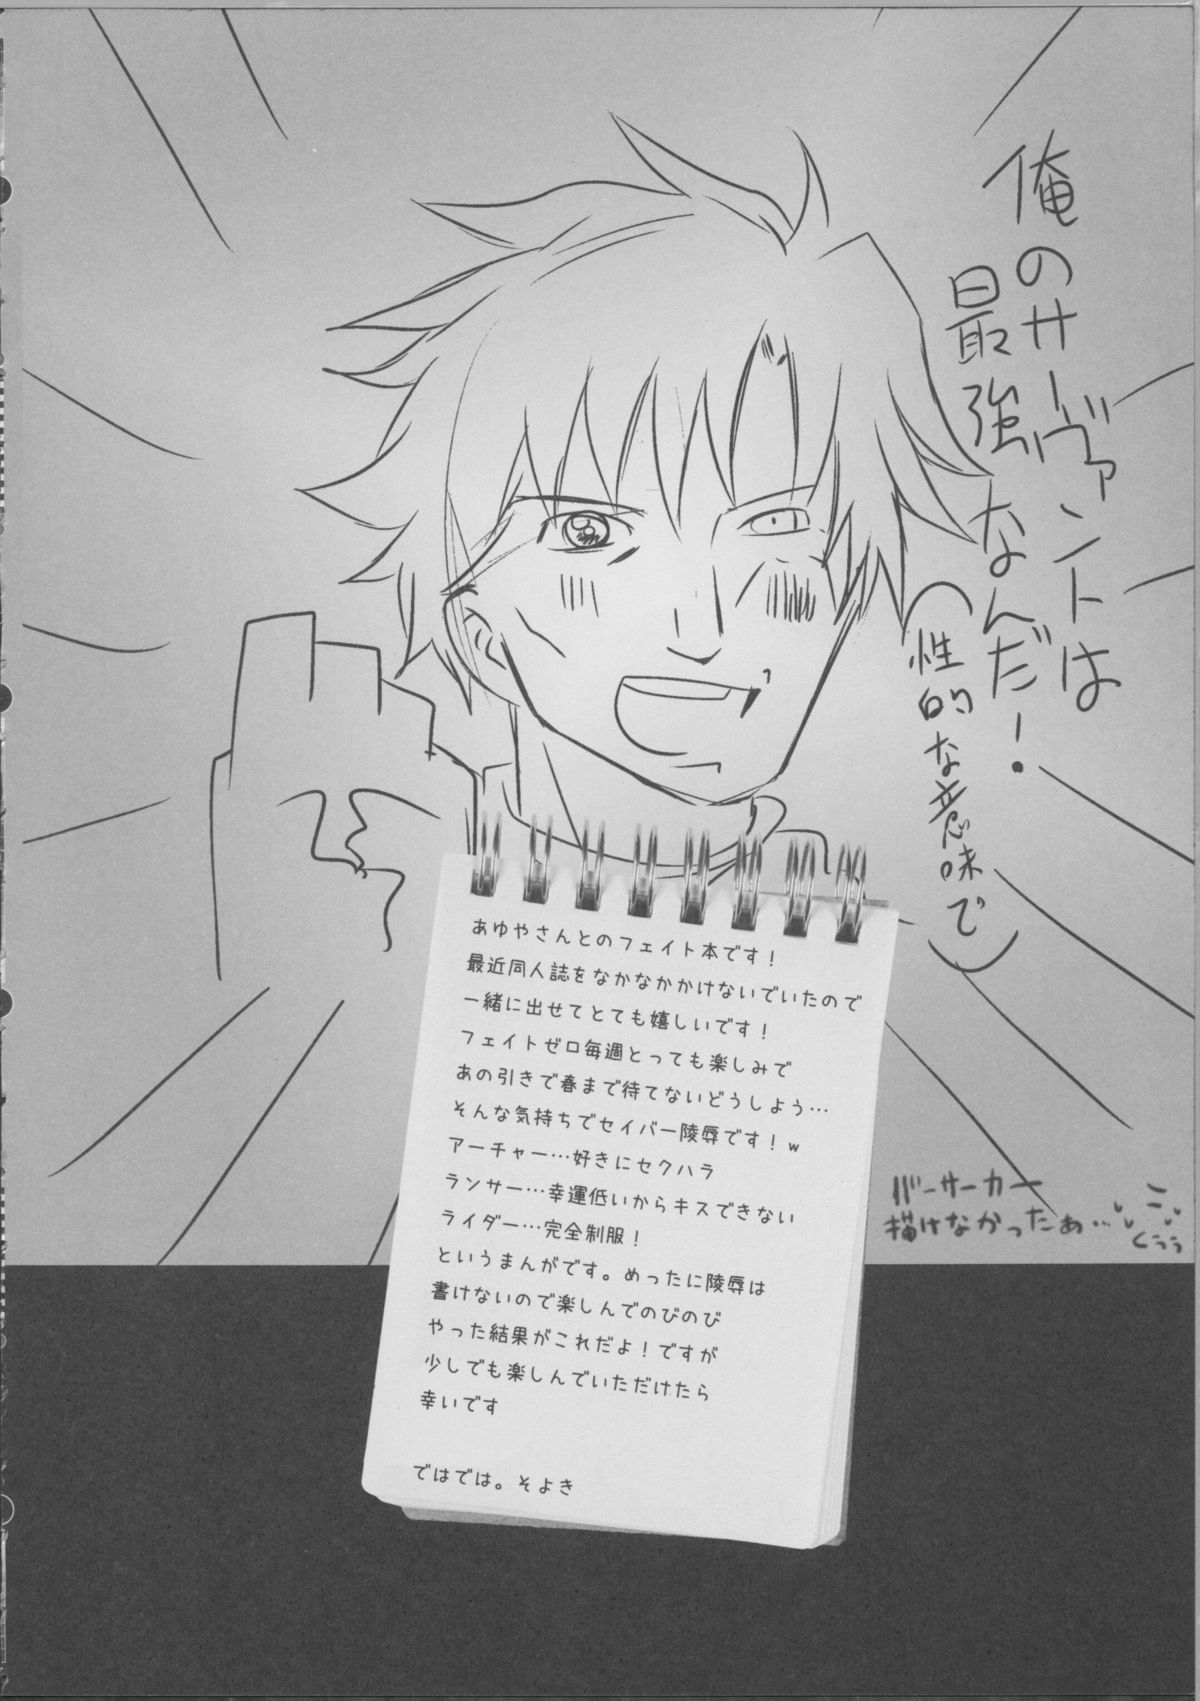 俺のサーヴァントは
最強なんだー!
(性的な意味で)
あゆやさんとのフェイト本です!
最近同人誌をなかなかかけないでいたので
一緒に出せてとても嬉しいです!
フェイトゼロ毎週とっても楽しみで
あの引きで春まで待てないどうしよう…
そんな気持ちでセイバー陵辱です!w
アーチャー…好きにセクハラ
ランサー…幸運低いからキスできない
ライダー…完全制服!
というまんがです。めったに陵辱は
書けないので楽しんでのびのび
やった結果がこれだよ!ですが
少しでも楽しんでいただけたら
幸いです
ではでは。そよき
バーサーカー
描けなかったぁ…
くぅぅ